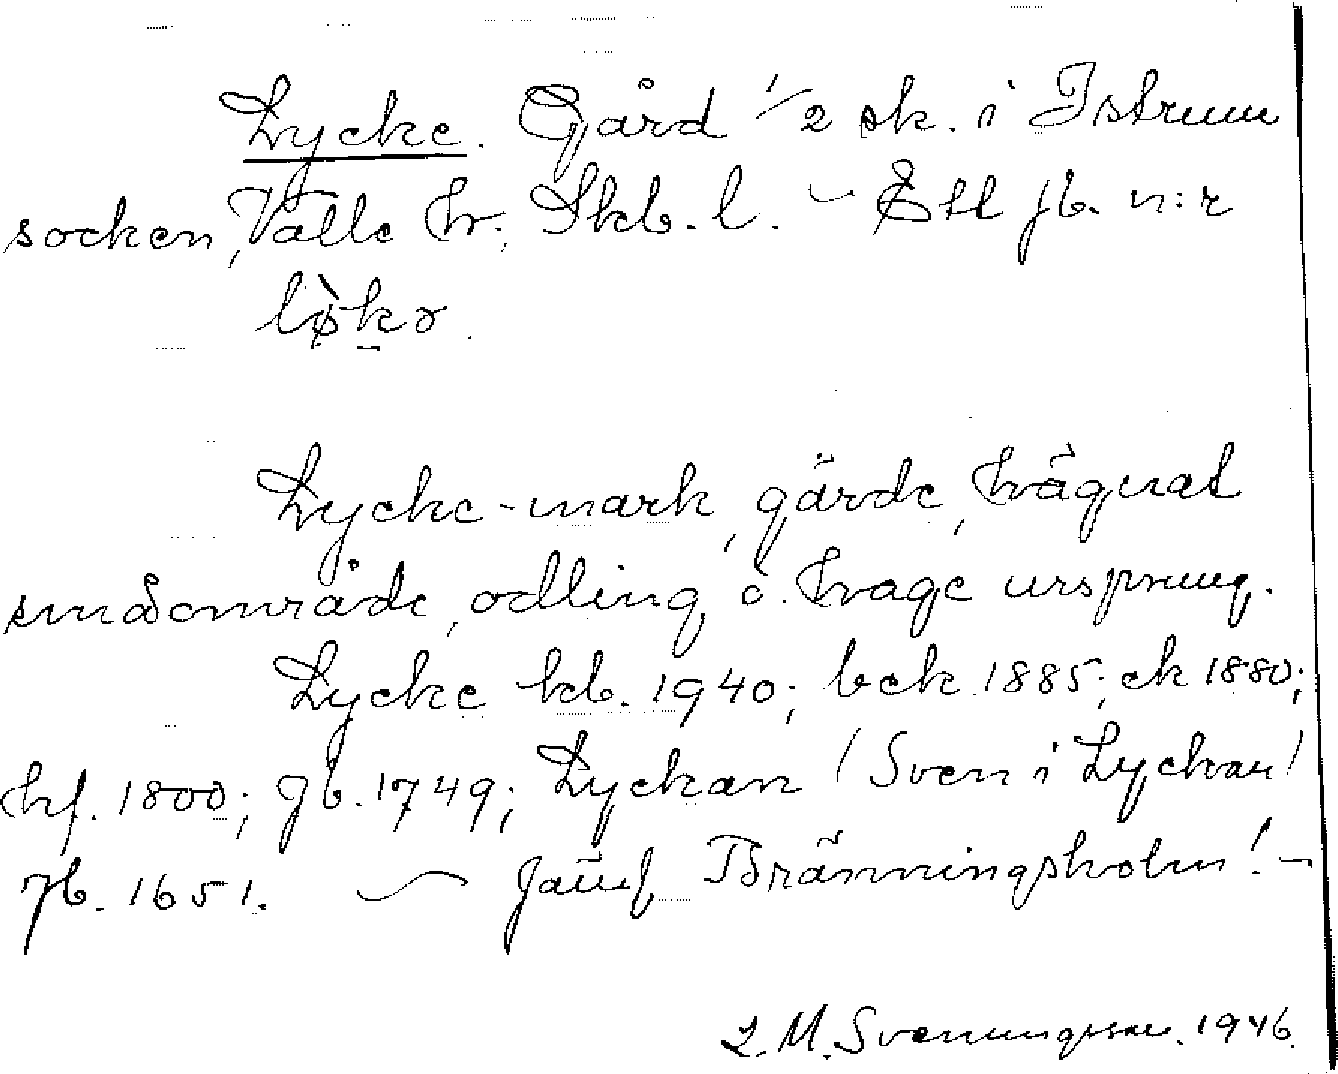 Lycke. Gård 1/2 sk. i Istrum
socken, Valle hr. Skb. l. – Ett jb. n:r
lø̀kə.
Lycke-mark, gärde, hägnat
småområde, odling o. hage ursprung.
Lycke kb. 1940; bek 1885; ek 1880;
hf. 1800; Gb. 1749; Lyckan (Sven i Lyckan)
Jb. 1651. – Jämf. Bränningsholm! –
L. M. Svenungsson. 1946.